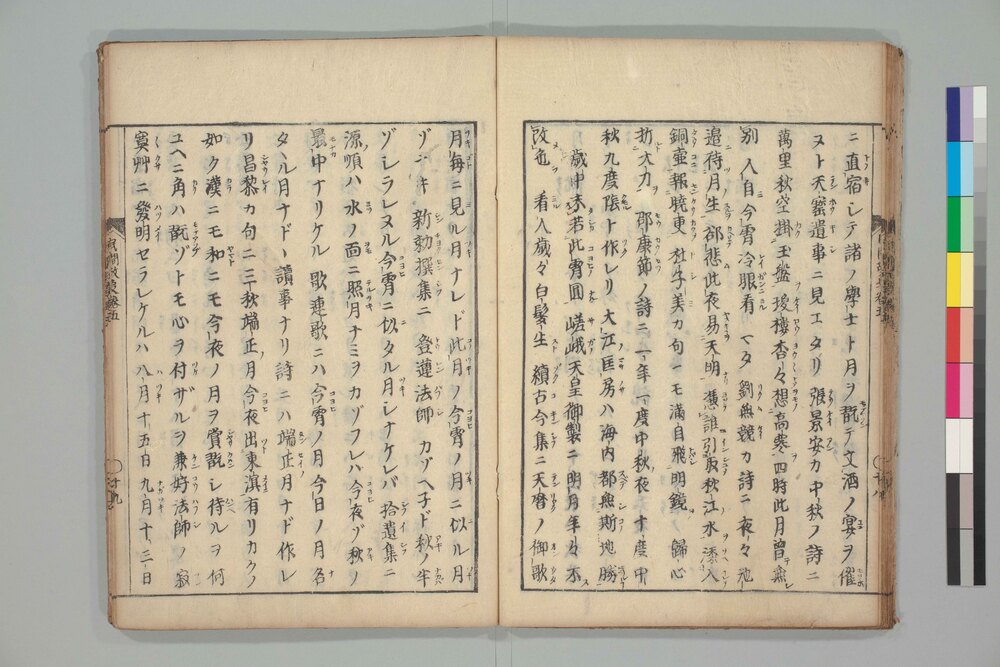 ニ直宿シテ諸ノ學士ト月ヲ翫テ文酒ノ宴ヲ催
ヌト天寳遺事ニ見エタリ 張景安カ中秋ノ詩ニ
萬里秋空掛玉盤 瑗樓杳々想高寒 四時此月曽無
別 人自今宵冷眼看 又 劉無競カ詩ニ 夜々池
邉待月生 却悲此夜易天明 憑誰引取秋江水 添入
銅壷報曉更 杜子美カ句ニモ 滿自飛明鏡 歸心
折大刀 邵康節ノ詩ニ 一年一度中秋夜 十度中
秋九度陰ト作レリ 大江匡房ハ 海内都無斯地勝
歳中未若此宵圓 嵯峨天皇御製ニ 明月年々不
改色 看人歳々白髪生 續古今集ニ 天暦ノ御歌
月毎ニ見ル月ナレド此月ノ今宵ノ月ニ似ル月
ゾナキ 新勅撰集ニ 登蓮法師 カゾヘ子ド秋ノ半
ゾシラレヌル今宵ニ似タル月シナケレバ 拾遺集ニ
源順ハ 水ノ面ニ照月ナミヲカゾフレハ今夜ゾ秋ノ
最中ナリケル 歌連歌ニハ 今宵ノ月 今日ノ月 名
タヽル月ナドヽ讀事ナリ 詩ニハ端正月ナド作レ
リ 昌黎カ句ニ 三秋端正月 今夜出東溟 有リ カクノ
如ク漢ニモ和ニモ今夜ノ月ヲ賞翫シ待ルヲ 何
ユヘニ角ハ翫ゾトモ心ヲ付ザルヲ 兼好法師ノ寂
寞艸ニ發明セラレケルハ 八月十五日九月十三日